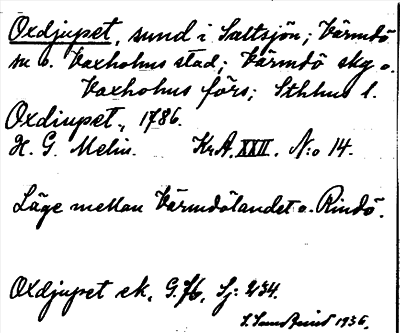 Oxdjupet, sund i Saltsjön; Värmdö
sn o. Vaxholms stad; Värmdö skg o.
Vaxholms förs; Sthlms l.
Oxdiupet, 1786.
H. G. Melin. KrA. XXII. N:o 14.
Läge mellan Värmdölandet o. Rindö.
Oxdjupet ek, G. 76, Sj: 234.
1936.